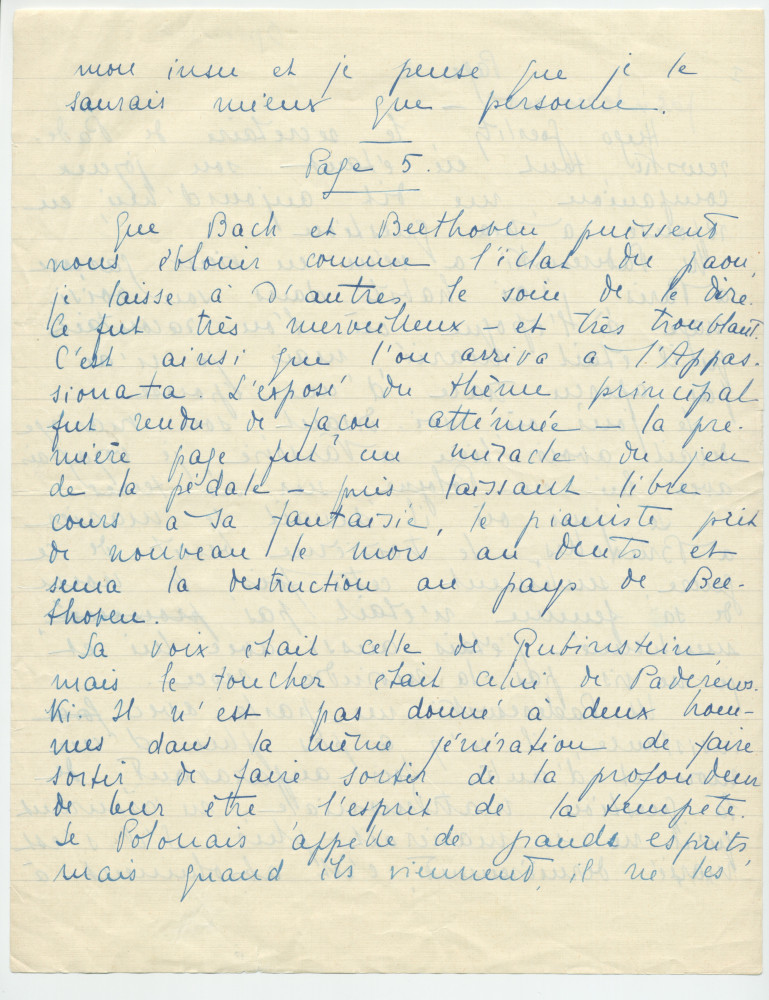 mon insu et je pense que je le
saurais mieux que personne.
Page 5.
Que Bach et Beethoven puissent
nous éblouir comme l'éclat du paon,
je laisse à d'autres le soin de le dire.
Ce fut très merveilleux - et très troublant.
C'est ainsi que l'on arriva à l'Appas-
sionata. L'exposé du thème principal
fut rendu de façon atténuée - la pre-
mière page fut un miracle du jeu
de la pédale - puis laissant libre
cours à sa fantaisie, le pianiste prit
de nouveau le mors au dents et
sema la destruction au pays de Bee-
thoven.
Sa voix était celle de Rubinstein,
mais le toucher était celui de Paderews-
Ki. Il n'est pas donné à deux hom-
mes dans la même génération de faire
sortir de faire sortir de la profondeur
de leur être l'esprit de la tempête.
Le Polonais appelle de grands esprits
mais quand ils viennent, il ne les